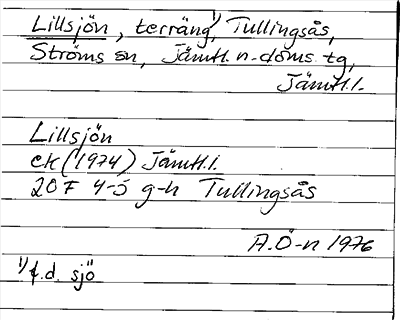 Lillsjön, terräng¹⁾, Tullingsås,
Ströms sn, Jämtl. n. doms. tg,
Jämtl. l.
Lillsjön
ek (1974) Jämtl. l.
20 F 4-5 g-h Tullingsås
A.Ö-n 1976
1) f.d. sjö